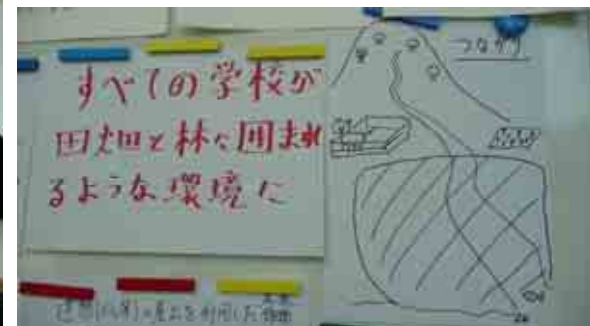 すべての学校が
田畑と林に囲まれ
るような環境に
つながり